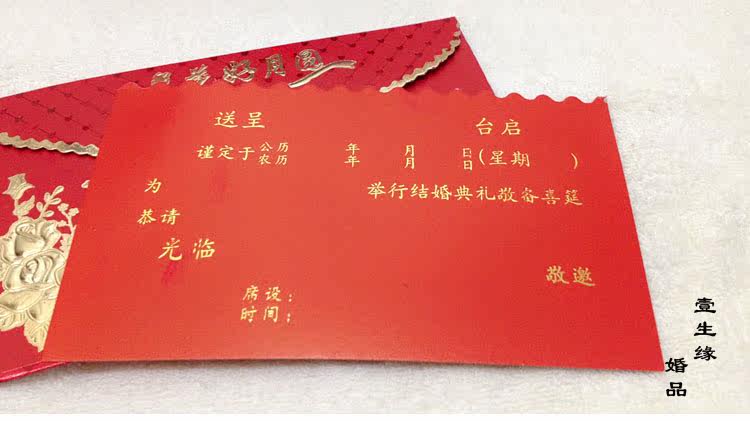 好月圆
送呈 台启
谨定于公历 年 月 日(星期 )
农历 年 月 日
为 举行结婚典礼敬备喜筵
恭请
光临
敬邀
席设:
时间:
壹生缘
婚品